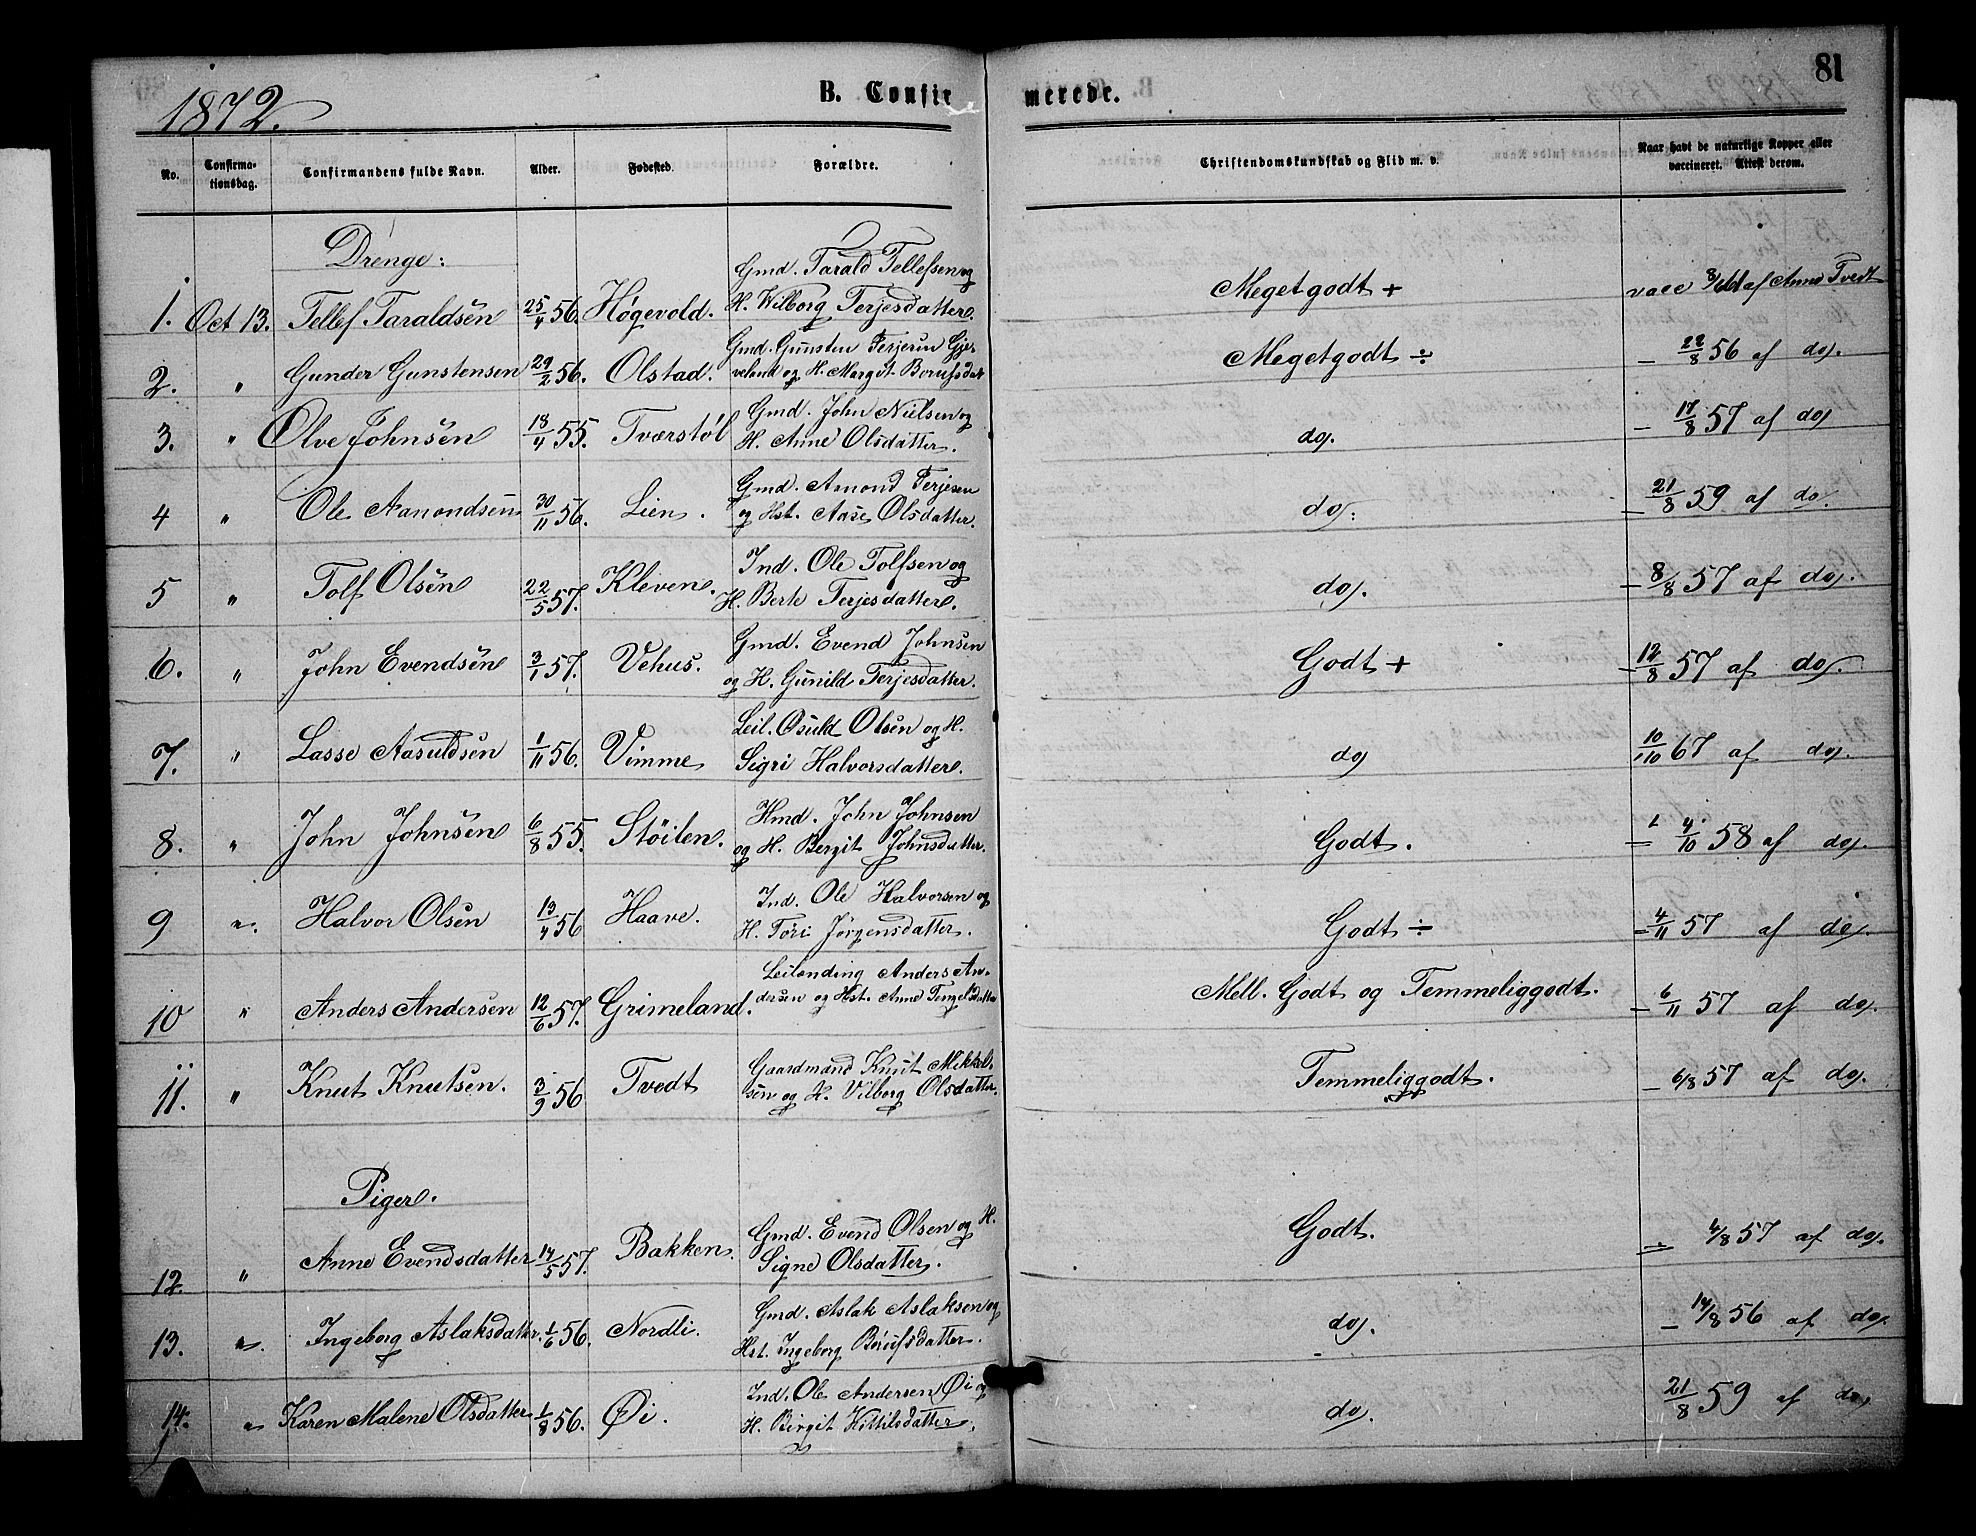 81
1872.
B. Confirmerede.
No. Confirmationsdag. Confirmandens fulde Navn. Alder. Fødested. Forældre. Christendomskundskab og Flid m. v. Naar havt de naturlige Kopper eller vaccineret. Attest derom.
Drenge:
Gmd. Tarald Tellefsen og
1. Oct 13. Tellef Taraldsen 25/4 56. Høgevold. H. Wilborg Terjesdatter. Megetgodt + vacc af Anne Tvedt
Gmd. Gunsten Terjesen Gjer-
2. " Gunder Gunstensen 29/2 56. Olstad. veland og H. Margit Borufsdat Megetgodt ÷ - 22/8 56 af do.
Gmd. John Nielsen og
3. " Olve Johnsen 18/4 55. Tværstøl H. Anne Olsdatter. do. - 17/8 57 af do
Gmd. Amond Terjesen
4 " Ole Aamondsen 30/11 56. Lien. og Hst. Aase Olsdatter. do. - 21/8 59 af do.
Ind. Ole Tolfsen og
5 " Tolf Olsen 22/5 57. Kleven. H. Berte Terjesdatter. do. - 8/8 57 af do.
Gmd. Evend Johnsen
6. " John Evendsen 3/1 57. Vehus. og H. Gunild Terjesdatter. Godt + - 12/8 57 af do.
Leil. Osuld Olsen og H.
7. " Lasse Aasuldsen 1/11 56. Vimme Sigri Halvorsdatter. do 10/10 67 af do.
Hmd. John Johnsen
8. " John Johnsen 6/8 55. Støilen. og H. Bergit Johnsdatter. Godt. - 4/10 58 af do.
Ind. Ole Halvorsen og
9 " Halvor Olsen 13/4 56 Haave. H. Tøri Jørgensdatter. Godt ÷ - 4/11 57 af do.
Leilending Anders An-
10 " Anders Andersen 12/6 57. Grimeland. dersen og Hst. Anne Tengelsdatter Mell. Godt og Temmeliggodt. - 6/11 57 af do.
Gaardmand Knut Mikkel-
11. " Knut Knutsen. 3/9 56 Tvedt sen og H. Vilborg Olsdatter. Temmeliggodt. - 6/8 57 af do.
Piger.
Gmd. Evend Olsen og H.
12. " Anne Evendsdatter 14/5 57. Bakken. Signe Olsdatter. Godt. - 4/8 57 af do.
Gmd. Aslak Aslaksen og
13. " Ingeborg Aslaksdatter. 1/6 56. Nordli. Hst. Ingeborg Børufsdatter. do. - 14/8 56 af do.
Ind. Ole Andersen Øi og
14. " Karen Malene Olsdatter 1/8 56. Øi. H. Birgit Kittilsdatter. do. 21/8 59 af do.